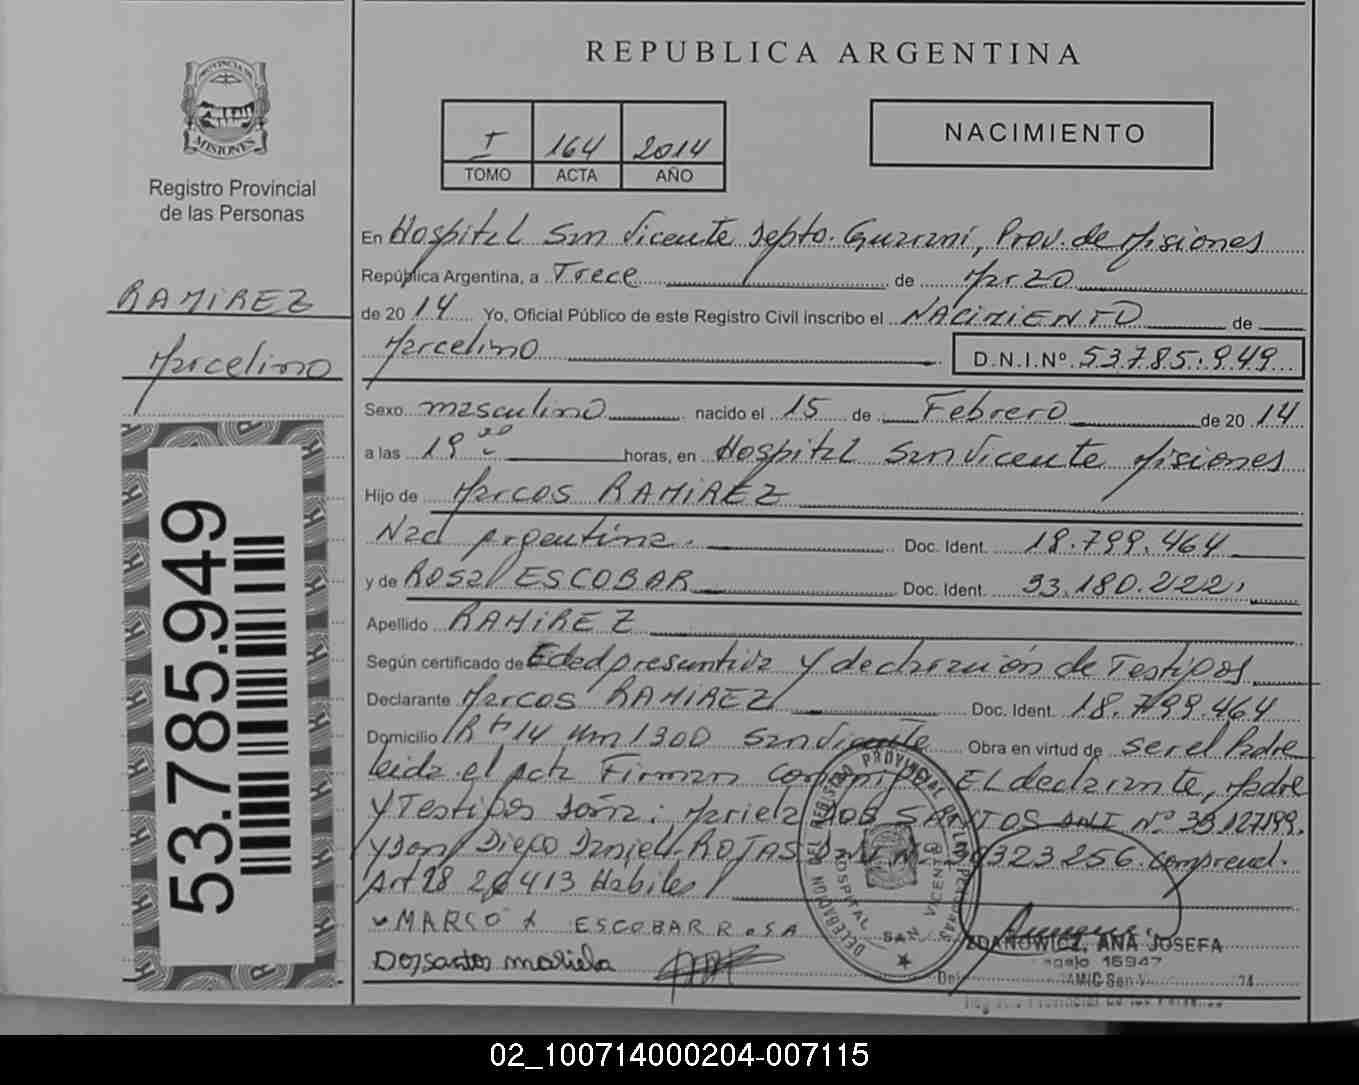 REPUBLICA ARGENTINA
PROVINCIA DE
MISIONES
Registro Provincial
de las Personas
RAMIREZ
Marcelino
53.785.949
I 164 2014
TOMO ACTA AÑO
NACIMIENTO
En Hospital San Vicente Depto. Guaraní, Prov. de Misiones
República Argentina, a Trece de Marzo
de 2014 Yo, Oficial Público de este Registro Civil inscribo el NACIMIENTO de
Marcelino D.N.I.Nº 53.785.949
Sexo masculino nacido el 15 de Febrero de 2014
a las 19 horas, en Hospital San Vicente Misiones
Hijo de Marcos RAMIREZ
Nac Argentina. Doc. Ident. 18.799.464
y de Rosa ESCOBAR Doc. Ident. 33.180.222
Apellido RAMIREZ
Según certificado de Edad presuntiva y declaración de Testigos
Declarante Marcos RAMIREZ Doc. Ident. 18.799.464
Domicilio R 14 Km 1300 San Vicente Obra en virtud de ser el Padre
Leida el acta Firman conmigo EL declarante, Madre
y Testigos Doña: Mariela DOS SANTOS DNI Nº 127199.
y Don Diego Daniel ROJAS 323256 comprend.
Art 28 26413 Habiles
MARCO ESCOBAR ROSA
Dossantos mariela
DELEGACION DEL REGISTRO PROVINCIAL DE LAS PERSONAS
HOSPITAL SAN VICENTE
ZDANOWICZ, ANA JOSEFA
Legajo 16947
Registro Provincial de las Personas
02_100714000204-007115